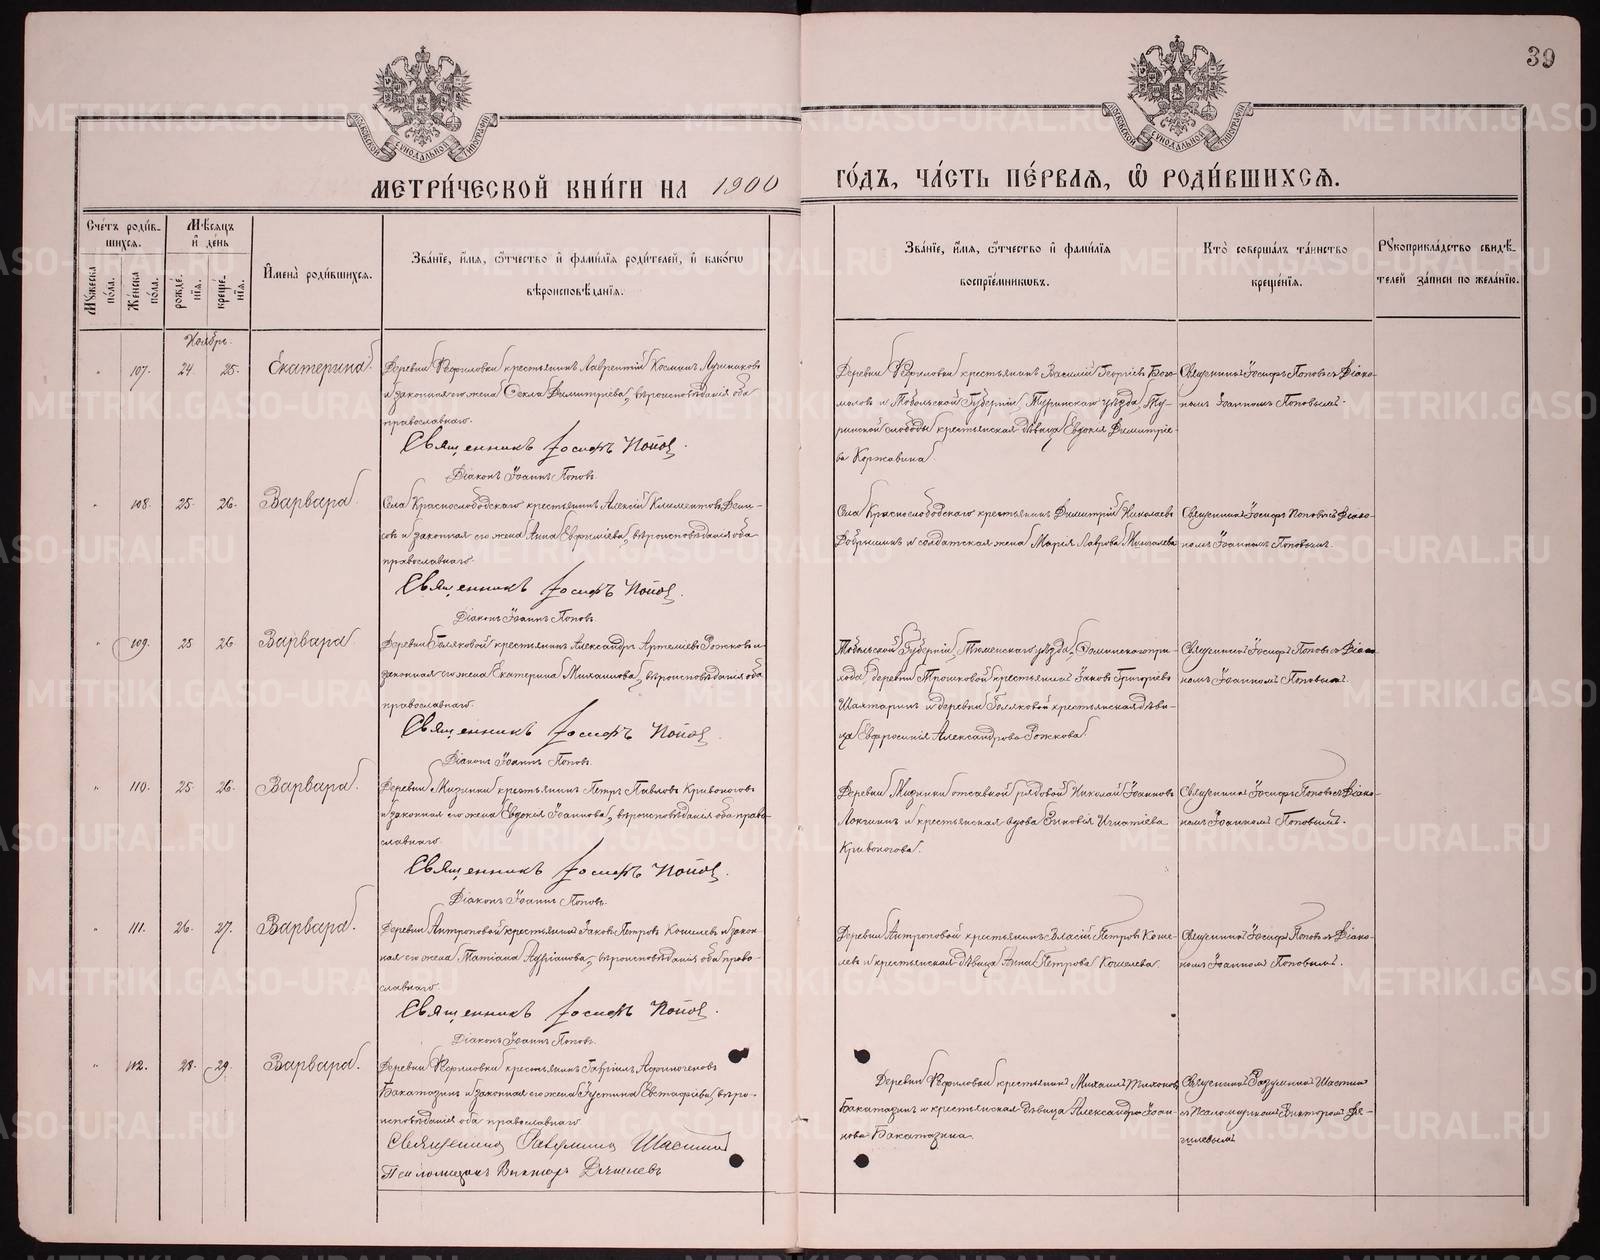 39
МОСКОВСКОЙ СѴНОДАЛЬНОЙ ТИПОГРАФІИ
МОСКОВСКОЙ СѴНОДАЛЬНОЙ ТИПОГРАФІИ
МЕТРИ́ЧЕСКОЙ КНИ́ГИ НА 1900 ГО́ДЪ, ЧА́СТЬ ПЕ́РВАѦ, Ѽ РОДИ́ВШИХСѦ.
Сче́тъ роди́в-
шихсѧ.
Мꙋжеска пола.
Же́нска по́ла.
Мѣ́сѧцъ и҆ де́нь
рожде́нїѧ.
креще́нїѧ.
И҆мена̀ роди́вшихсѧ.
Зва́нїе, и҆́мѧ, ѻ҆́тчество и҆ фами́лїѧ роди́телей, и҆ како́гѡ
вѣроисповѣ́данїѧ.
Зва́нїе, и҆́мѧ, ѻ҆́тчество и҆ фами́лїѧ
воспрїе́мникѡвъ.
Кто̀ соверша́лъ та́инство
креще́нїѧ.
Рꙋкоприкла́дство свидѣ́-
телей за́писи по жела́нїю.
Ноябрь.
107. 24 25. Екатерина.
Деревни Фефиловки крестьянинъ Лаврентій Косминъ
и законная его жена Ѳекла Димитріева, вѣроисповѣданія оба
православнаго.
Священникъ Іосифъ Поповъ.
Діаконъ Іоаннъ Поповъ.
Деревни Фефиловки крестьянинъ Василій Георгіевъ Бого-
моловъ и Тобольской Губерніи, Туринскаго уѣзда, Ту-
ринской слободы крестьянская дѣвица Евдокія Димитріе-
ва Коржавина.
Священникъ Іосифъ Поповъ съ Діако-
номъ Іоанномъ Поповымъ.
108. 25. 26. Варвара.
Села Краснослободскаго крестьянинъ Алексій Климентовъ
и законная его жена Анна Евфиміева, вѣроисповѣданія оба
православнаго.
Священникъ Іосифъ Поповъ.
Діаконъ Іоаннъ Поповъ.
Села Краснослободскаго крестьянинъ Димитрій Николаевъ
Добрынинъ и солдатская жена Марія Лаврова
Священникъ Іосифъ Поповъ съ Діако-
номъ Іоанномъ Поповымъ.
109. 25 26 Варвара.
Деревни Голяковой крестьянинъ Александръ Артеміевъ Рожковъ и
законная его жена Екатерина Михаилова, вѣроисповѣданія оба
православнаго.
Священникъ Іосифъ Поповъ.
Діаконъ Іоаннъ Поповъ.
Тобольской Губерніи, Тюменскаго уѣзда, при-
хода, деревни Трошковой крестьянинъ Іаковъ Григорьевъ
Шахтаринъ и деревни Голяковой крестьянская дѣви-
ца Евфросинія Александрова Рожкова.
Священникъ Іосифъ Поповъ съ Діако-
номъ Іоанномъ Поповымъ.
110. 25. 26. Варвара.
Деревни Мизинки крестьянинъ Петръ Павловъ Кривоноговъ
и законная его жена Евдокія Іоаннова, вѣроисповѣданія оба право-
славнаго.
Священникъ Іосифъ Поповъ.
Діаконъ Іоаннъ Поповъ.
Деревни Мизинки отставной рядовой Николай Іоанновъ
Лонгинъ и крестьянская вдова Зиновія Игнатіева
Кривоногова.
Священникъ Іосифъ Поповъ съ Діако-
номъ Іоанномъ Поповымъ.
111. 26. 27. Варвара.
Деревни Антроповой крестьянинъ Іаковъ Петровъ Кошелевъ и закон-
ная его жена Татіана Адріанова, вѣроисповѣданія оба право-
славнаго.
Священникъ Іосифъ Поповъ.
Діаконъ Іоаннъ Поповъ.
Деревни Антроповой крестьянинъ Власій Петровъ Коше-
левъ и крестьянская дѣвица Анна Петрова Кошелева.
Священникъ Іосифъ Поповъ съ Діако-
номъ Іоанномъ Поповымъ.
112. 28. 29. Варвара.
Деревни Фефиловки крестьянинъ Гавріилъ Аѳиногеновъ
Бакатазинъ и законная его жена Іустина Евстафіева, вѣро-
исповѣданія оба православнаго.
Священникъ Разумникъ Шастинъ
Псаломщикъ Викторъ
Деревни Фефиловки крестьянинъ Михаилъ Тихоновъ
Бакатазинъ и крестьянская дѣвица Александра Іоан-
нова Бакатазина.
Священникъ Разумникъ Шастинъ
съ Псаломщикомъ Викторомъ
METRIKI.GASO-URAL.RU